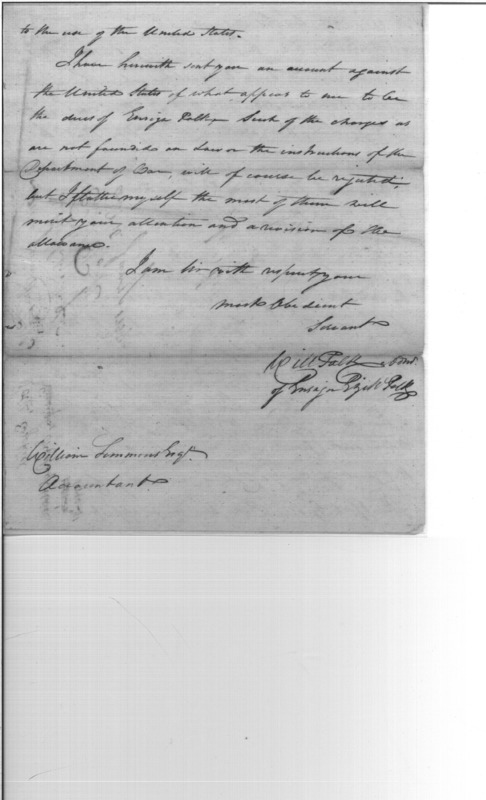 to the use of the United States.
I have herewith sent you an account against
the United States of what appears to me to be
the dues of Ensign Polk, Such of the charges as
are not founded on Law or the instructions of the
Department of War, will of course be rejected,
but I flatter myself the most of them will
merit your attention and a revision of the
allowance.
I am Sir with respect your
most Obedient
Servant
Will Polk
of Ensign Polk
William Simmons Esqr.
Accountant